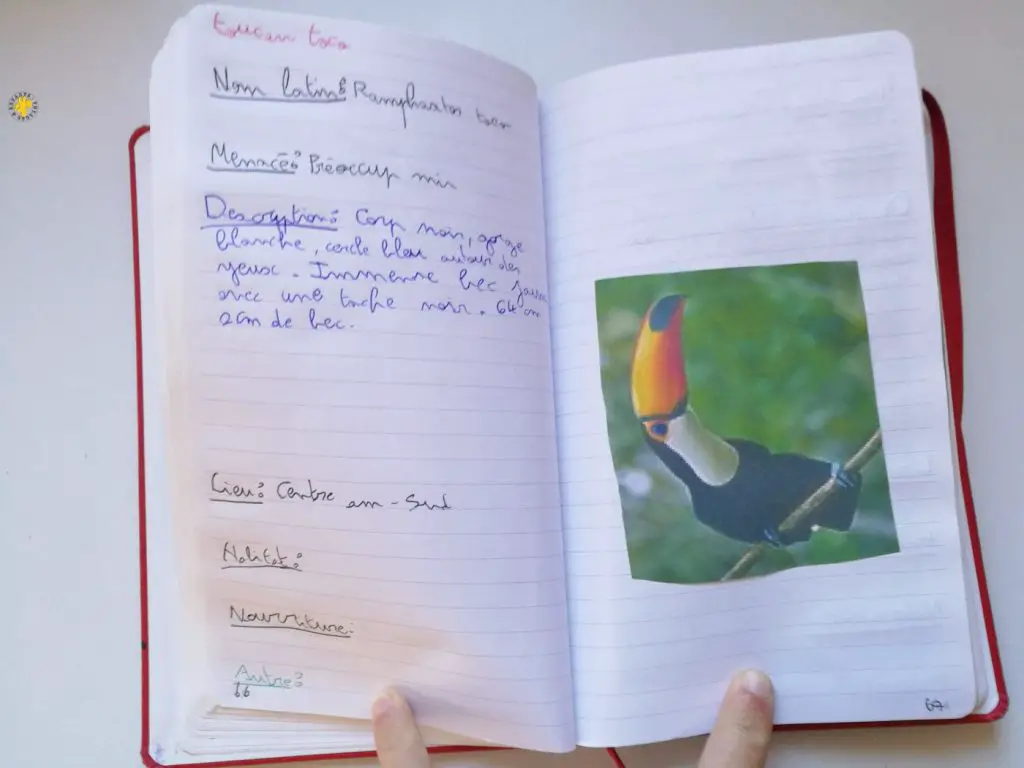 toucan toco
Nom latin: Ramphastos toco
Menacé: Préoccup min
Description: Corp noir, gorge
blanche, cercle bleu autour des
yeux. Immense bec jaune
avec une tache noir. 64 cm
2cm de bec.
Lieu: Centre am-Sud
Habitat:
Nourriture:
Autre:
66
67